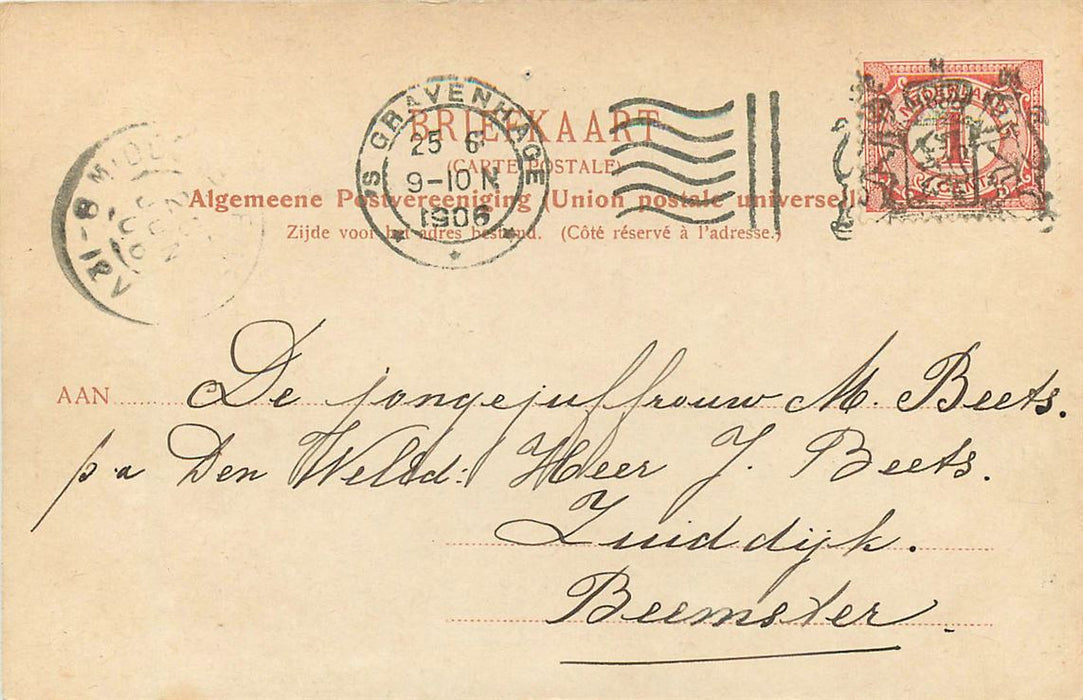 BRIEFKAART
(CARTE POSTALE)
Algemeene Postvereeniging (Union postale universelle)
Zijde voor het adres bestemd. (Côté réservé à l'adresse.)
'S GRAVENHAGE
25 6
9-10 N
1906
NEDERLAND
1
CENT
8-12V
AAN De jongejuffrouw M. Beets.
p.a Den Weled: Heer J. Beets.
Zuiddijk.
Beemster.